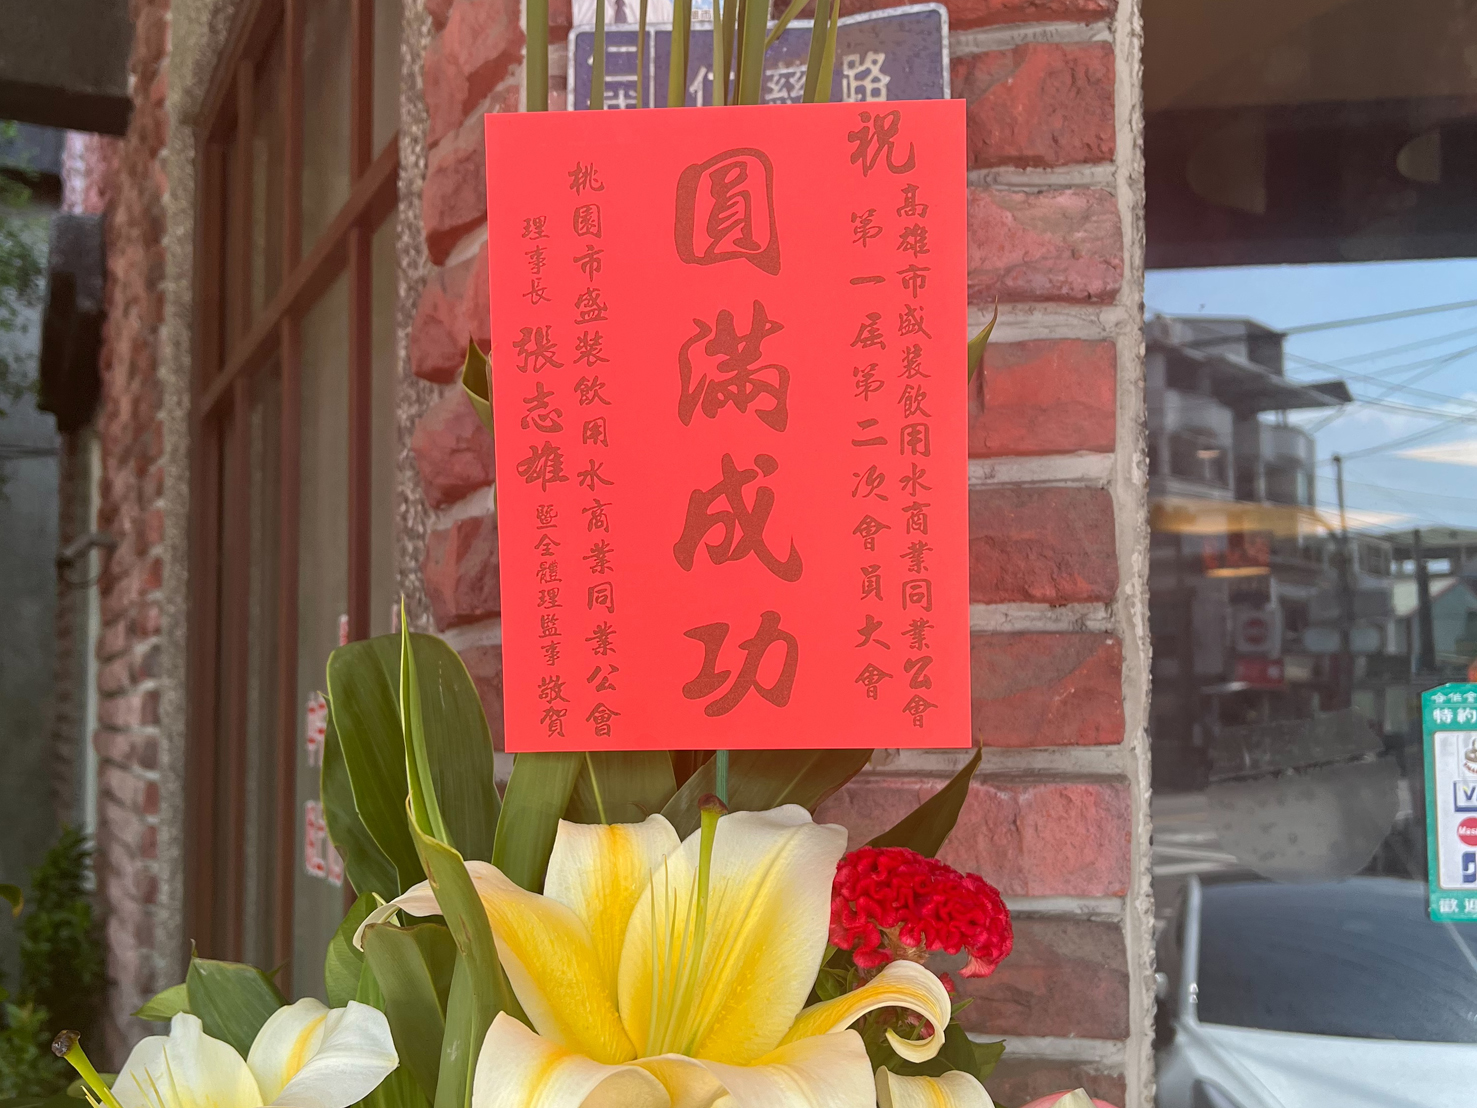 仁武
仁慈路
祝
高雄市盛裝飲用水商業同業公會
第一屆第二次會員大會
圓滿成功
桃園市盛裝飲用水商業同業公會
理事長 張志雄 暨全體理監事 敬賀
特約
歡迎